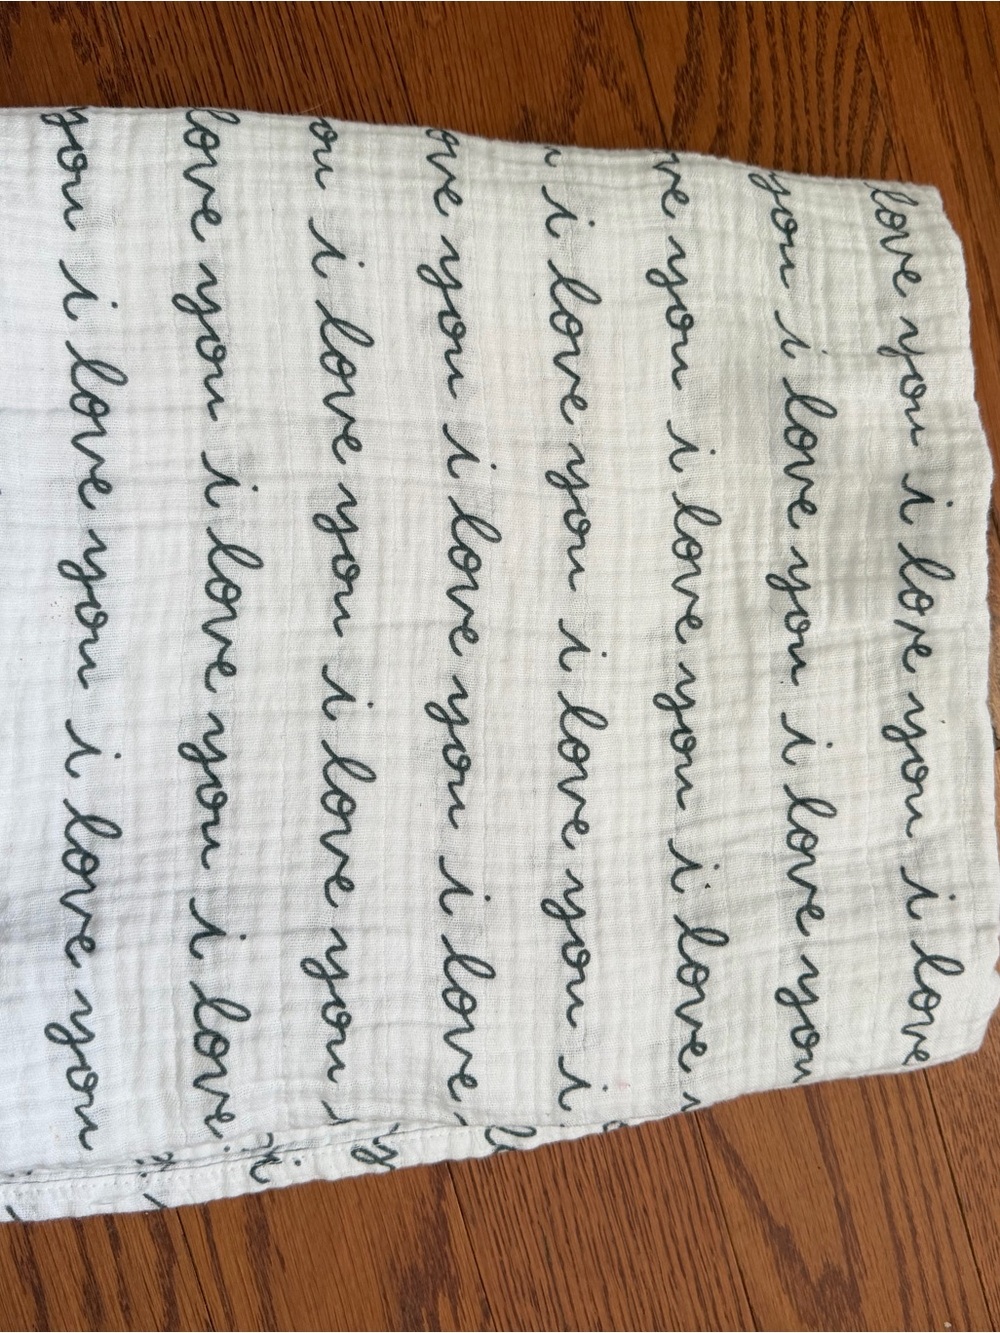 love you i love you i love
you i love you i love you
ve you i love you i love
i love you i love you i
ove you i love you i love
ou i love you i love you
love you i love you i love
you i love you i love you